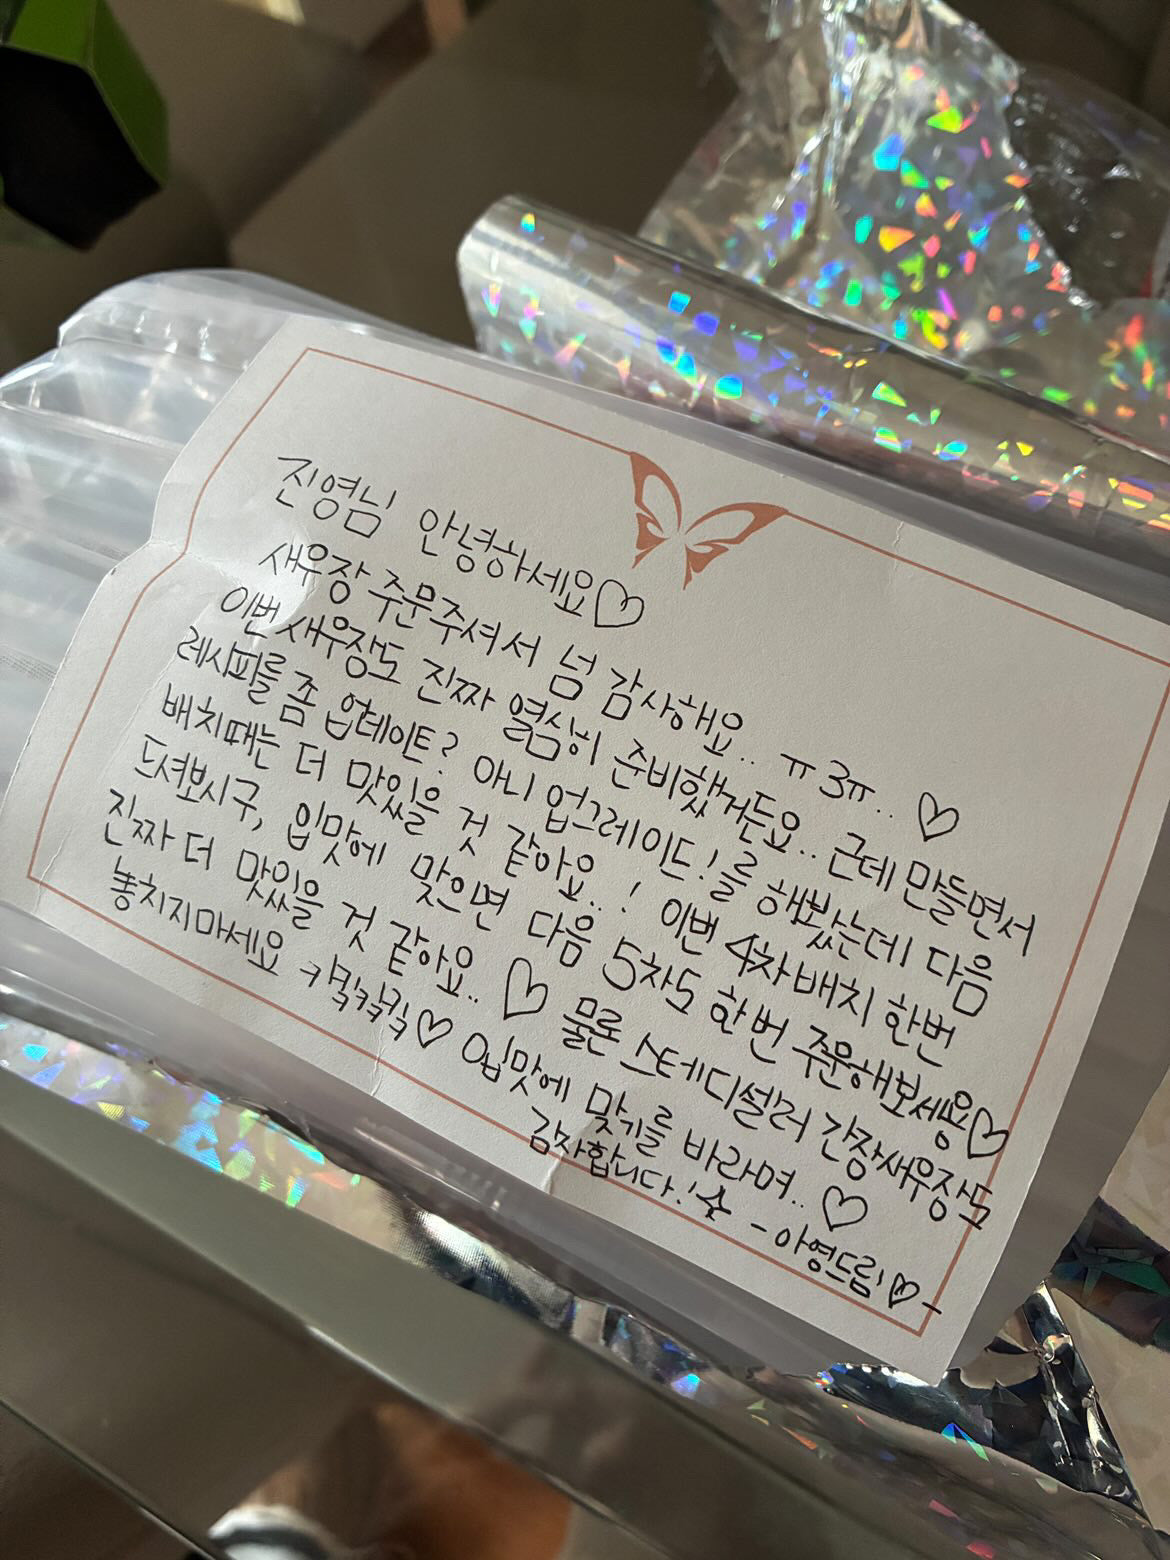 진영님 안녕하세요♡
새우장 주문주셔서 넘 감사해요.. ㅠ3ㅠ.. ♡
이번 새우장도 진짜 열심히 준비했거든요.. 근데 만들면서
레시피를 좀 업데이트? 아니 업그레이드!를 해봤는데 다음
배치때는 더 맛있을 것 같아요..! 이번 4차배치 한번
드셔보시구, 입맛에 맞으면 다음 5차도 한번 주문해보세용♡
진짜 더 맛있을 것 같아요.. ♡ 물론 스테디셀러 간장새우장도
놓치지마세요 ㅋㅋㅋㅋ♡ 입맛에 맞기를 바라며.. ♡
감사합니다!☆ -아영드림!♡-